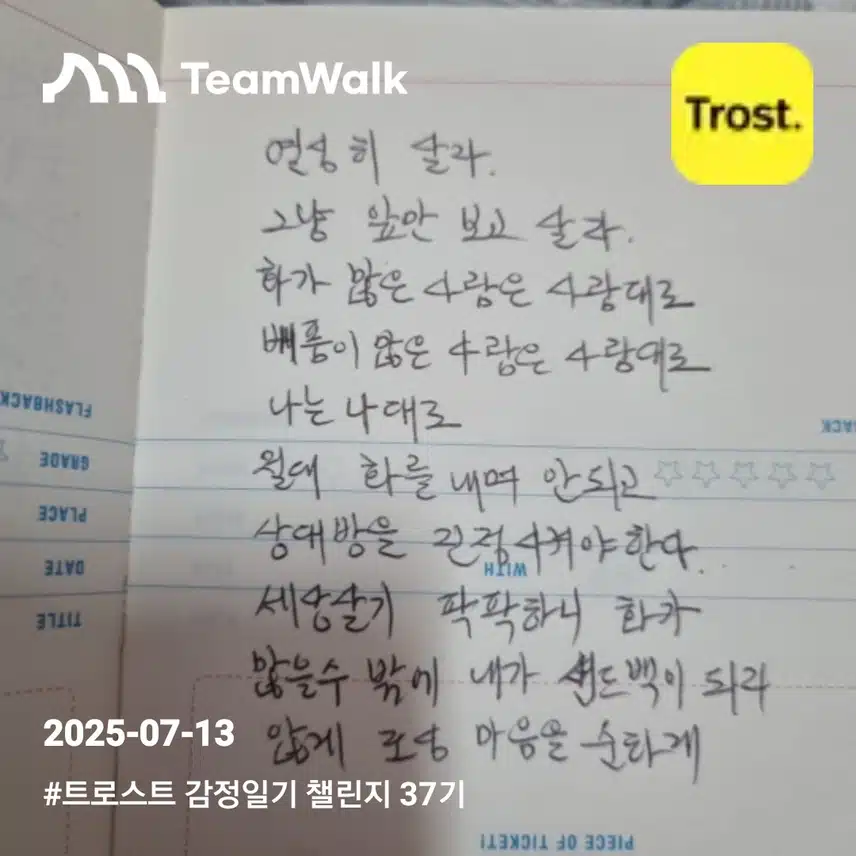 TeamWalk
Trost.
열심히 살라.
그냥 앞만 보고 살라.
화가 많은 사람은 사람대로
배품이 많은 사람은 사람대로
나는 나대로
절대 화를 내며 안되고
상대방을 진정시켜야한다.
세상살기 팍팍하니 화가
많을수 밖에 내가 샌드백이 되라
않게 조심 마음을 순하게
FLASHBACK
GRADE
PLACE
DATE
TITLE
WITH
PIECE OF TICKET!
2025-07-13
#트로스트 감정일기 챌린지 37기